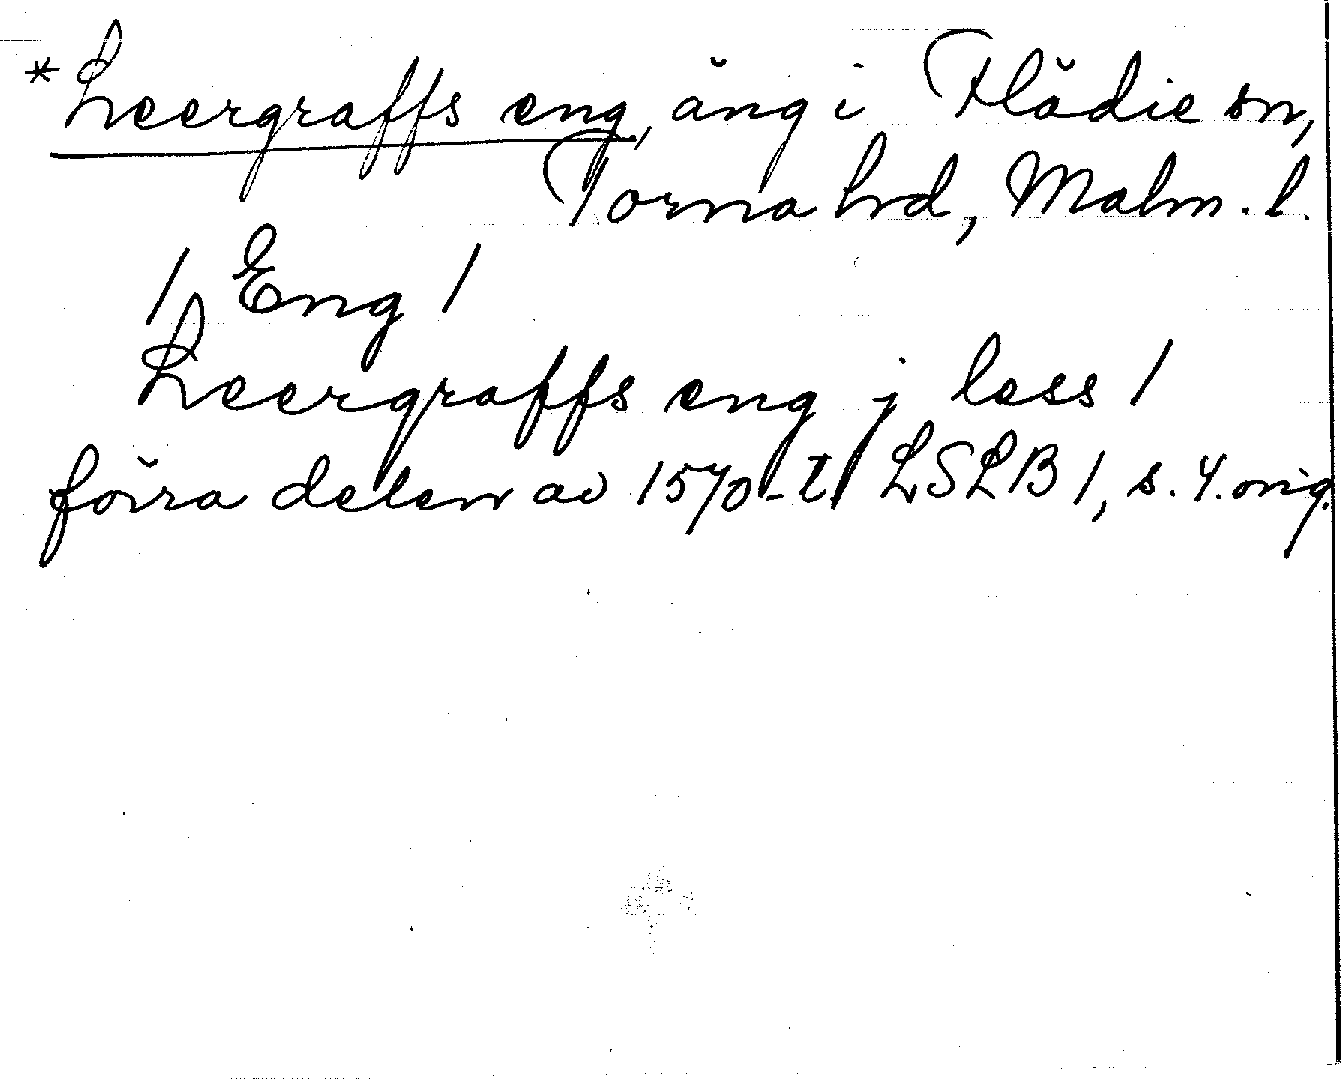 *Leergraffs eng, äng i Flädie sn,
Torna hrd, Malm. l.
/ Eng /
Leergraffs eng j less /
förra delen av 1570-t. LSLB 1, s. 4. orig.